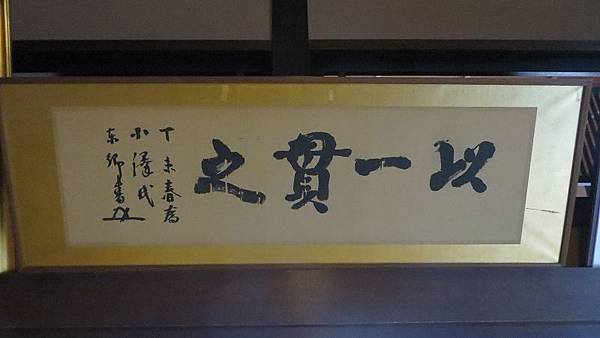 以一貫之
丁未春為
小澤氏
东郷書